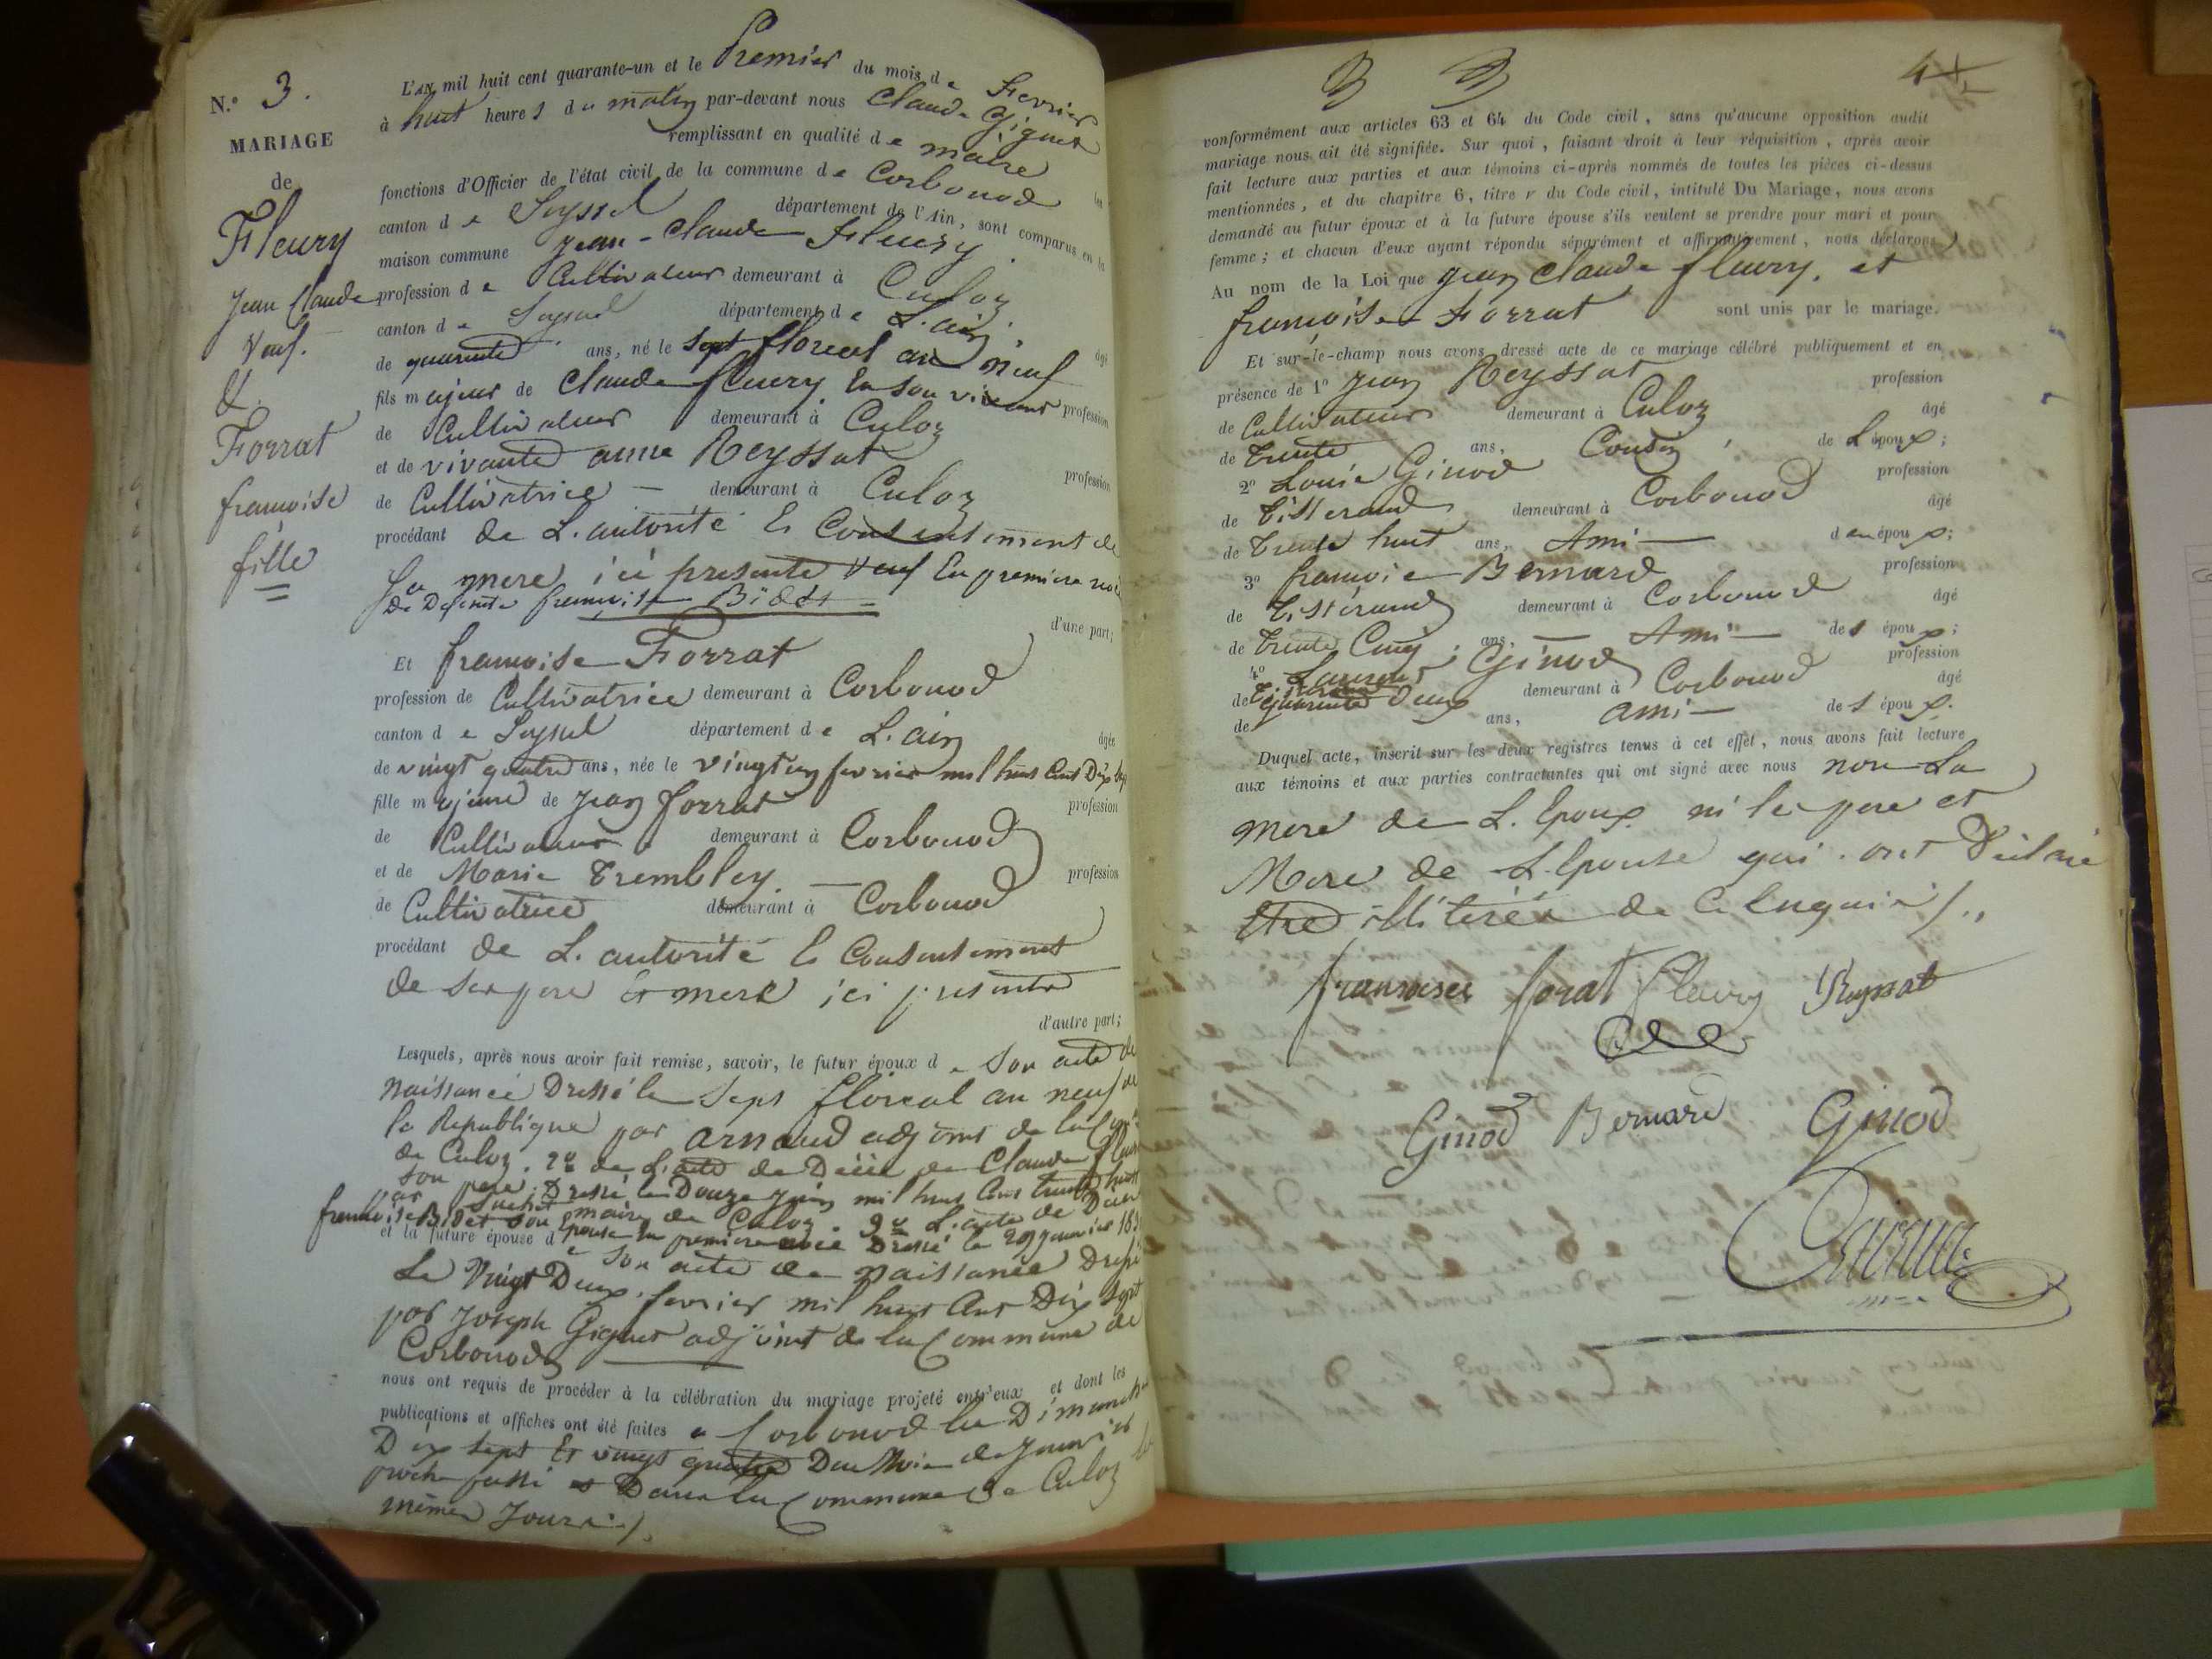 N.º 3.
MARIAGE
de
Fleury
Jean Claude
Veuf.
&.
Forrat
françoise
fille
L'AN mil huit cent quarante-un et le Premier du mois de Fevrier
à huit heures du matin par-devant nous Claude Giguet
remplissant en qualité de maire les
fonctions d'Officier de l'état civil de la commune de Corbonod
canton de Seyssel département de l'Ain, sont comparus en la
maison commune Jean-Claude Fleury
profession de Cultivateur demeurant à Culoz
canton de Seyssel département de L'ain âgé
de quarante ans, né le sept floréal an neuf
fils majeur de Claude fleury En son vivant profession
de Cultivateur demeurant à Culoz
et de vivante anne Reyssat profession
de Cultivatrice — demeurant à Culoz
procédant de L'autorité & Consentement de
Sa mere ici presente Veuf En premiere
de Defunte françoise Bidet
d'une part;
Et françoise Forrat
profession de Cultivatrice demeurant à Corbonod
canton de Seyssel département de L'ain âgée
de vingt quatre ans, née le vingt un fevrier mil huit Cent Dix sept
fille majeure de Jean forrat profession
de Cultivateur demeurant à Corbonod
et de Marie Trembley. — profession
de Cultivatrice demeurant à Corbonod
procédant de L'autorité & Consentement
de ses pere & mere ici presents
d'autre part;
Lesquels, après nous avoir fait remise, savoir, le futur époux de Son acte de
naissance Dressé le Sept floréal an neuf de
la Republique par Arnaud adjoint de la
de Culoz. 2º de L'acte de Décès de Claude fleury
son pere Dressé le Douze Juin mil huit Cent trente huit
par Suchet maire de Culoz. 3º L'acte de Décès
françoise Bidet son Epouse En premiere Dressé le 29 janvier
et la future épouse de Son acte de naissance Dressé
Le Vingt Deux fevrier mil huit Cent Dix Sept
par Joseph Giguet adjoint de la Commune de
Corbonod
nous ont requis de procéder à la célébration du mariage projeté entr'eux et dont les
publications et affiches ont été faites a Corbonod les Dimanches
Dix Sept Et vingt quatre Du Mois de Janvier
proche passé & Dans la Commune de Culoz les
mêmes Jours./.
4
conformément aux articles 63 et 64 du Code civil, sans qu'aucune opposition audit
mariage nous ait été signifiée. Sur quoi, faisant droit à leur réquisition, après avoir
fait lecture aux parties et aux témoins ci-après nommés de toutes les pièces ci-dessus
mentionnées, et du chapitre 6, titre v du Code civil, intitulé Du Mariage, nous avons
demandé au futur époux et à la future épouse s'ils veulent se prendre pour mari et pour
femme; et chacun d'eux ayant répondu séparément et affirmativement, nous déclarons
Au nom de la Loi que Jean Claude fleury. et
françoise Forrat sont unis par le mariage.
Et sur-le-champ nous avons dressé acte de ce mariage célébré publiquement et en
présence de 1º Jean Reyssat profession
de Cultivateur demeurant à Culoz âgé
de trente ans, Cousin de L'époux;
2º Louis Ginod profession
de Tisserand demeurant à Corbonod âgé
de trente huit ans, Ami — des époux;
3º françois Bernard profession
de Tisserand demeurant à Corbonod âgé
de trente Cinq ans, — Ami — des époux;
4º Laurent Ginod profession
de demeurant à Corbonod âgé
de quarante Deux ans, ami — des époux.
Duquel acte, inscrit sur les deux registres tenus à cet effet, nous avons fait lecture
aux témoins et aux parties contractantes qui ont signé avec nous non La
mere de L'époux ni les pere et
Mere de L'épouse qui ont Déclaré
être illitérés de Ce Enquis/.
fransoise forat fleury JReyssat
Ginod Bernard Ginod